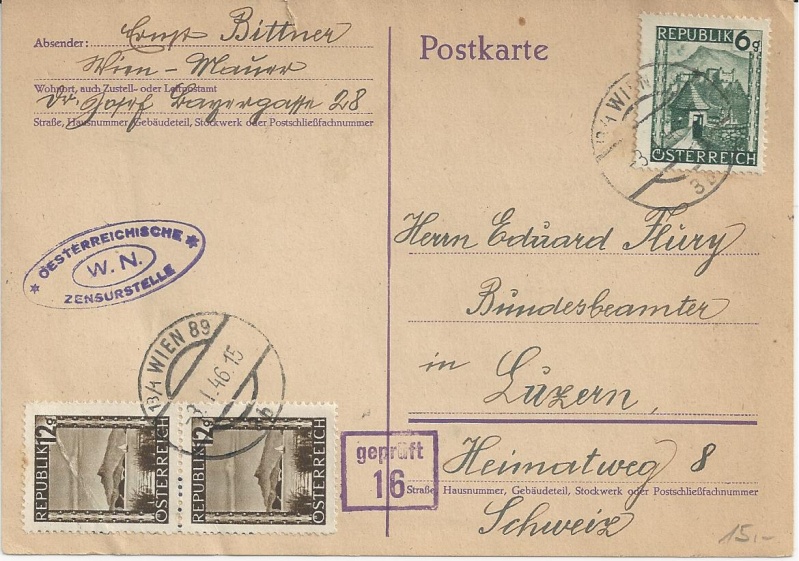 Absender: Ernst Bittner
Wien-Mauer
Wohnort, auch Zustell- oder Leitpostamt
Dr. Josef Bayergasse 28
Straße, Hausnummer, Gebäudeteil, Stockwerk oder Postschließfachnummer
Postkarte
REPUBLIK 6g
ÖSTERREICH
WIEN
Herrn Eduard Flury
Bundesbeamter
in
Luzern,
Heimatweg 8
Straße, Hausnummer, Gebäudeteil, Stockwerk oder Postschließfachnummer
Schweiz
15.-
* OESTERREICHISCHE *
W. N.
ZENSURSTELLE
13/1 WIEN 89
3. I. 46. 15
b
REPUBLIK 12g
ÖSTERREICH
REPUBLIK 12g
ÖSTERREICH
geprüft
16